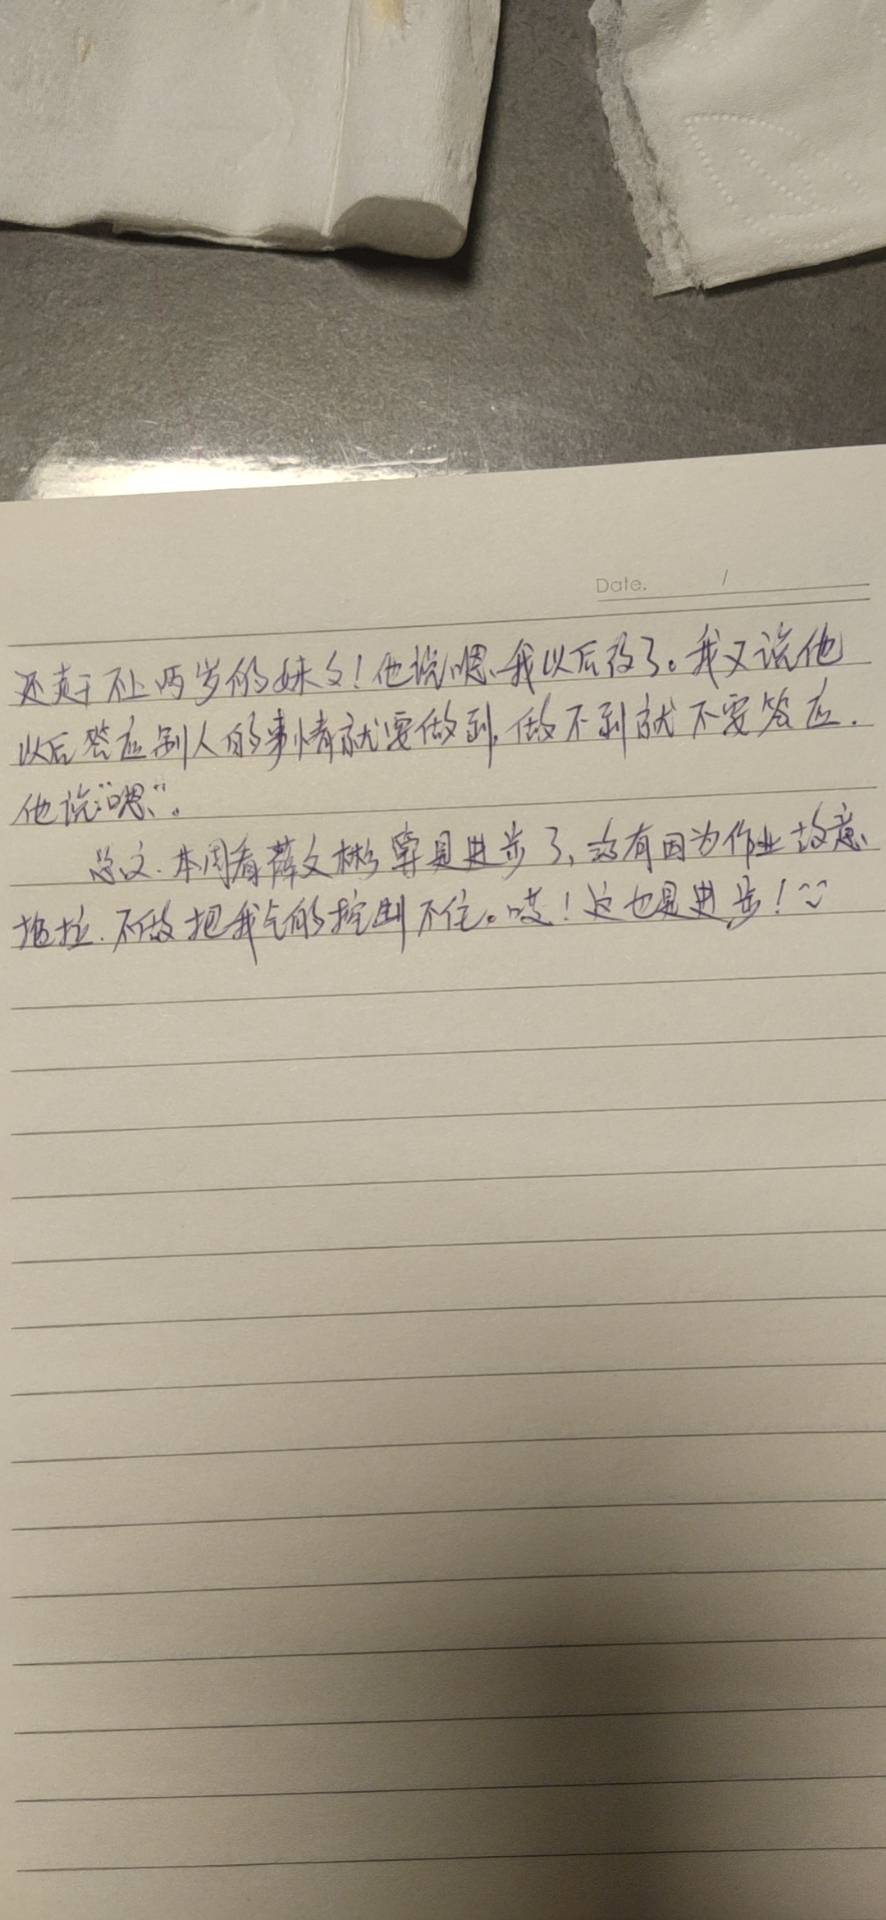 Date. /
还赶不上两岁的妹々!他说嗯、我以后改了。我又说他
以后答应别人的事情就要做到,做不到就不要答应.
他说:"嗯、"。
总之.本周看薛文彬算是进步了,没有因为作业故意、
拖拉.不做把我气的控制不住。哎!这也是进步!